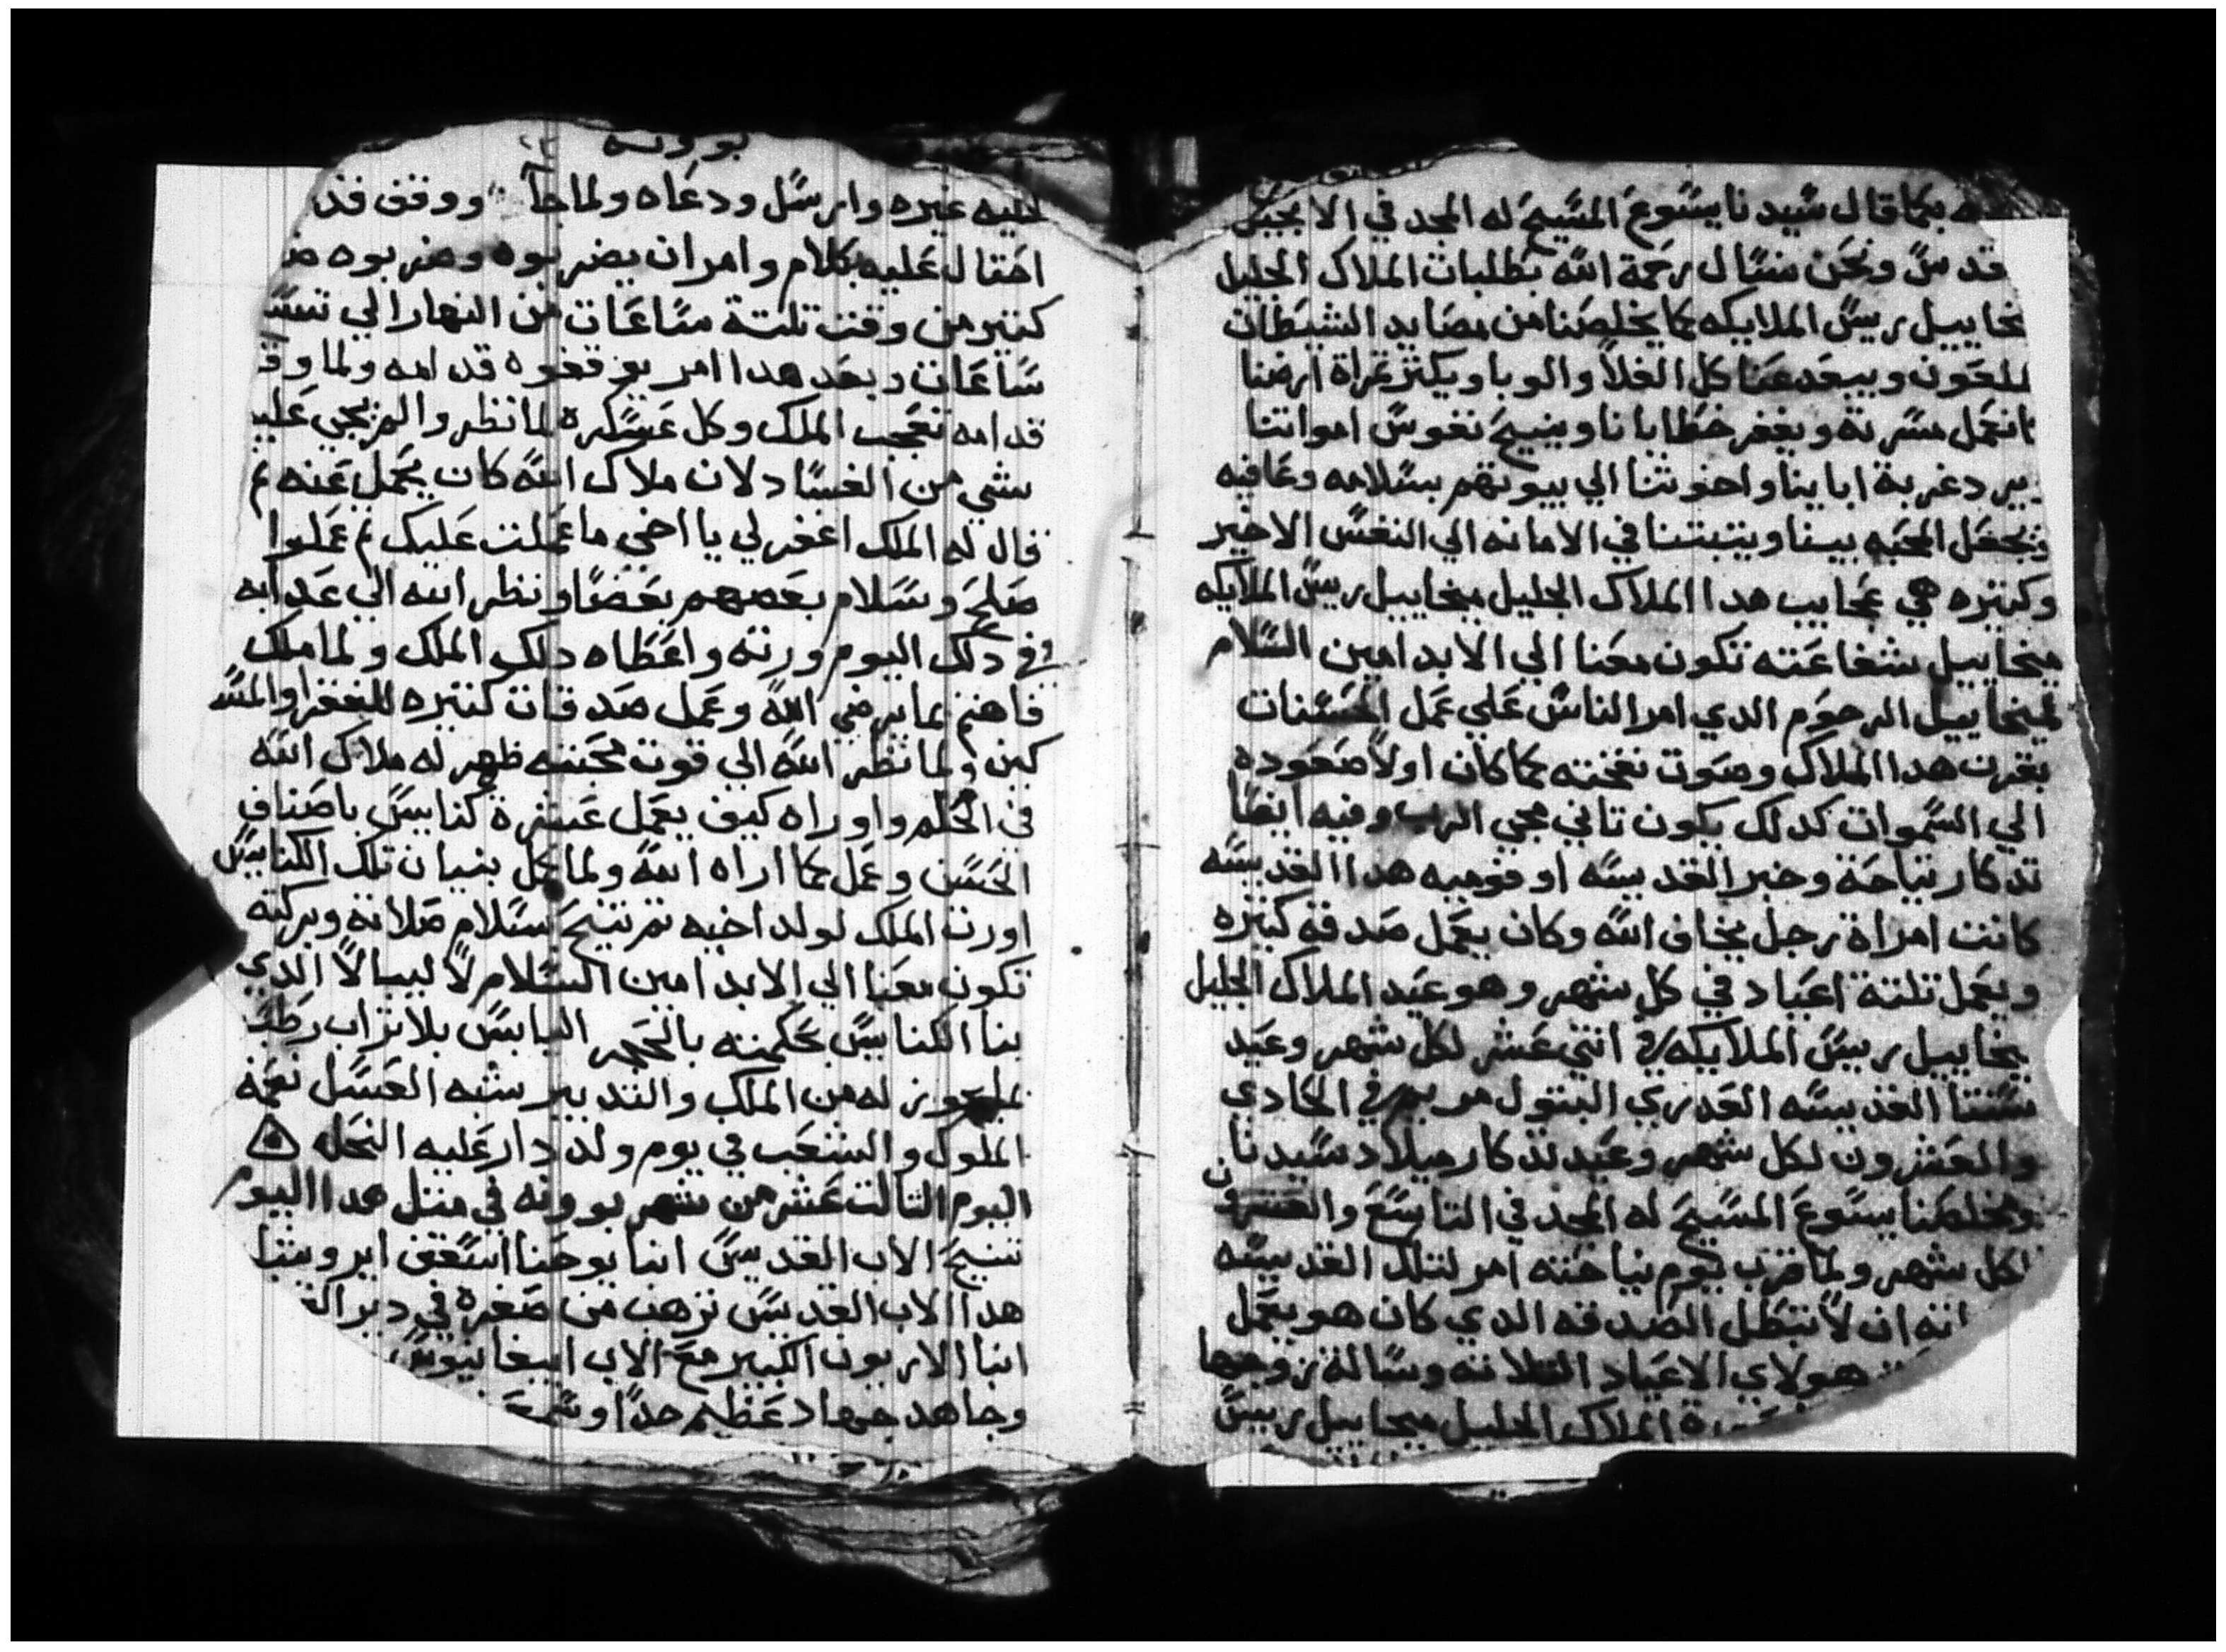 كما قال سيدنا يسوع المسيح له المجد في الانجيل
قدس ونحن نسال رحمة الله بطلبات الملاك الجليل
يخاييل ريس الملايكه كما يخلصنا من مصايد الشيطان
للعون ويبعد عنا كل الغلا والوبا ويكثر ثمراة ارضنا
انعمل مسرته ويغفر خطايانا وينيح نفوس امواتنا
يرد غربة اباينا واخوتنا الي بيوتهم بسلامه وعافيه
ويجعل المحبه بيننا ويتبتنا في الامانه الي النفس الاخير
وكتيره هي عجايب هدا الملاك الجليل ميخاييل ريس الملايكه
ميخاييل شفاعته تكون معنا الي الابد امين السلام
لميخاييل الرحوم الدي امر الناس علي عمل الحسنات
بقرن هدا الملاك وصوت نفخته كما كان اولا صعوده
الي السموات كدلك يكون تاني مجي الرب وفيه ايضا
تدكار نياحة وخبر القديسه اوفوميه هدا القديسه
كانت امراة رجل يخاف الله وكان يعمل صدقه كتيره
ويعمل تلتة اعياد في كل شهر وهو عيد الملاك الجليل
يخاييل رييس الملايكه في اتني عشر لكل شهر وعيد
ستنا القديسه العدري البتول مريم في الحادي
والعشرون لكل شهر وعيد تدكار ميلاد سيدنا
ومخلصنا يسوع المسيح له المجد في التاسع والعشرون
لكل شهر ولما قرب يوم نياحته امر لتلك القديسه
انه ان لا تبطل الصدقه الدي كان هو يعمل
هولاي الاعياد التلاته وسالة زوجها
الملاك الجليل ميخاييل رييس
بوونه
عليه غيره وارسل ودعاه ولما جا ووقف قد
احتال عليه بكلام وامر ان يضربوه وضربوه
كتير من وقت تلتة ساعات من النهار الي تسع
ساعات وبعد هدا امر يوقفوه قدامه ولما وقف
قدامه تعجب الملك وكل عسكره لما نظروا لم يجي عليه
شي من الفساد لان ملاك الله كان يحمل عنه ثم
قال له الملك اغفر لي يا اخي ما عملت عليك ثم عملوا
صلح وسلام بعضهم بعضا ونظر الله الي عدابه
في دلك اليوم ورته واعطاه دلك الملك ولما ملك
فاهتم بما يرضي الله وعمل صدقات كتيره للفقرا والمسا
كين ولما نظر الله الي قوت محبته ظهر له ملاك الله
في الحلم واوراه كيف يعمل عشرة كنايس باصناف
الحسن وعمل كما اراه الله ولما كمل بنيان تلك الكنايس
اورت الملك لولد اخيه ثم تنيح بسلام صلاته وبركته
تكون معنا الي الابد امين السلام لاليبالا الدي
بنا الكنايس بحكمته بالحجر اليابس بلا تراب رطب
له من الملك والتدبير شبه العسل نعمة
الملوك والشعب في يوم ولد دار عليه النحل
اليوم التالت عشر من شهر بوونه في متل هدا اليوم
تنيح الاب القديس انبا يوحنا اسقف ايروينا
هدا الاب القديس ترهب من صغره في دير
انبا الاريون الكبير مع الاب ابيفانيوس
وجاهد جهاد عظيم جدا